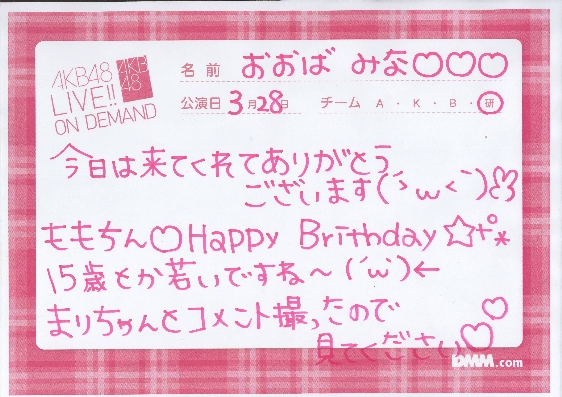 AKB48
LIVE!!
ON DEMAND
AKB
48
名前 おおば みな♡♡♡
公演日 3月28日 チーム A・K・B・研
今日は来てくれてありがとう
ございます(´>ω<`)
ももちん♡Happy Brithday☆
15歳とか若いですね〜(´ω`)←
まりちゃんとコメント撮ったので
見てください♡♡
DMM.com